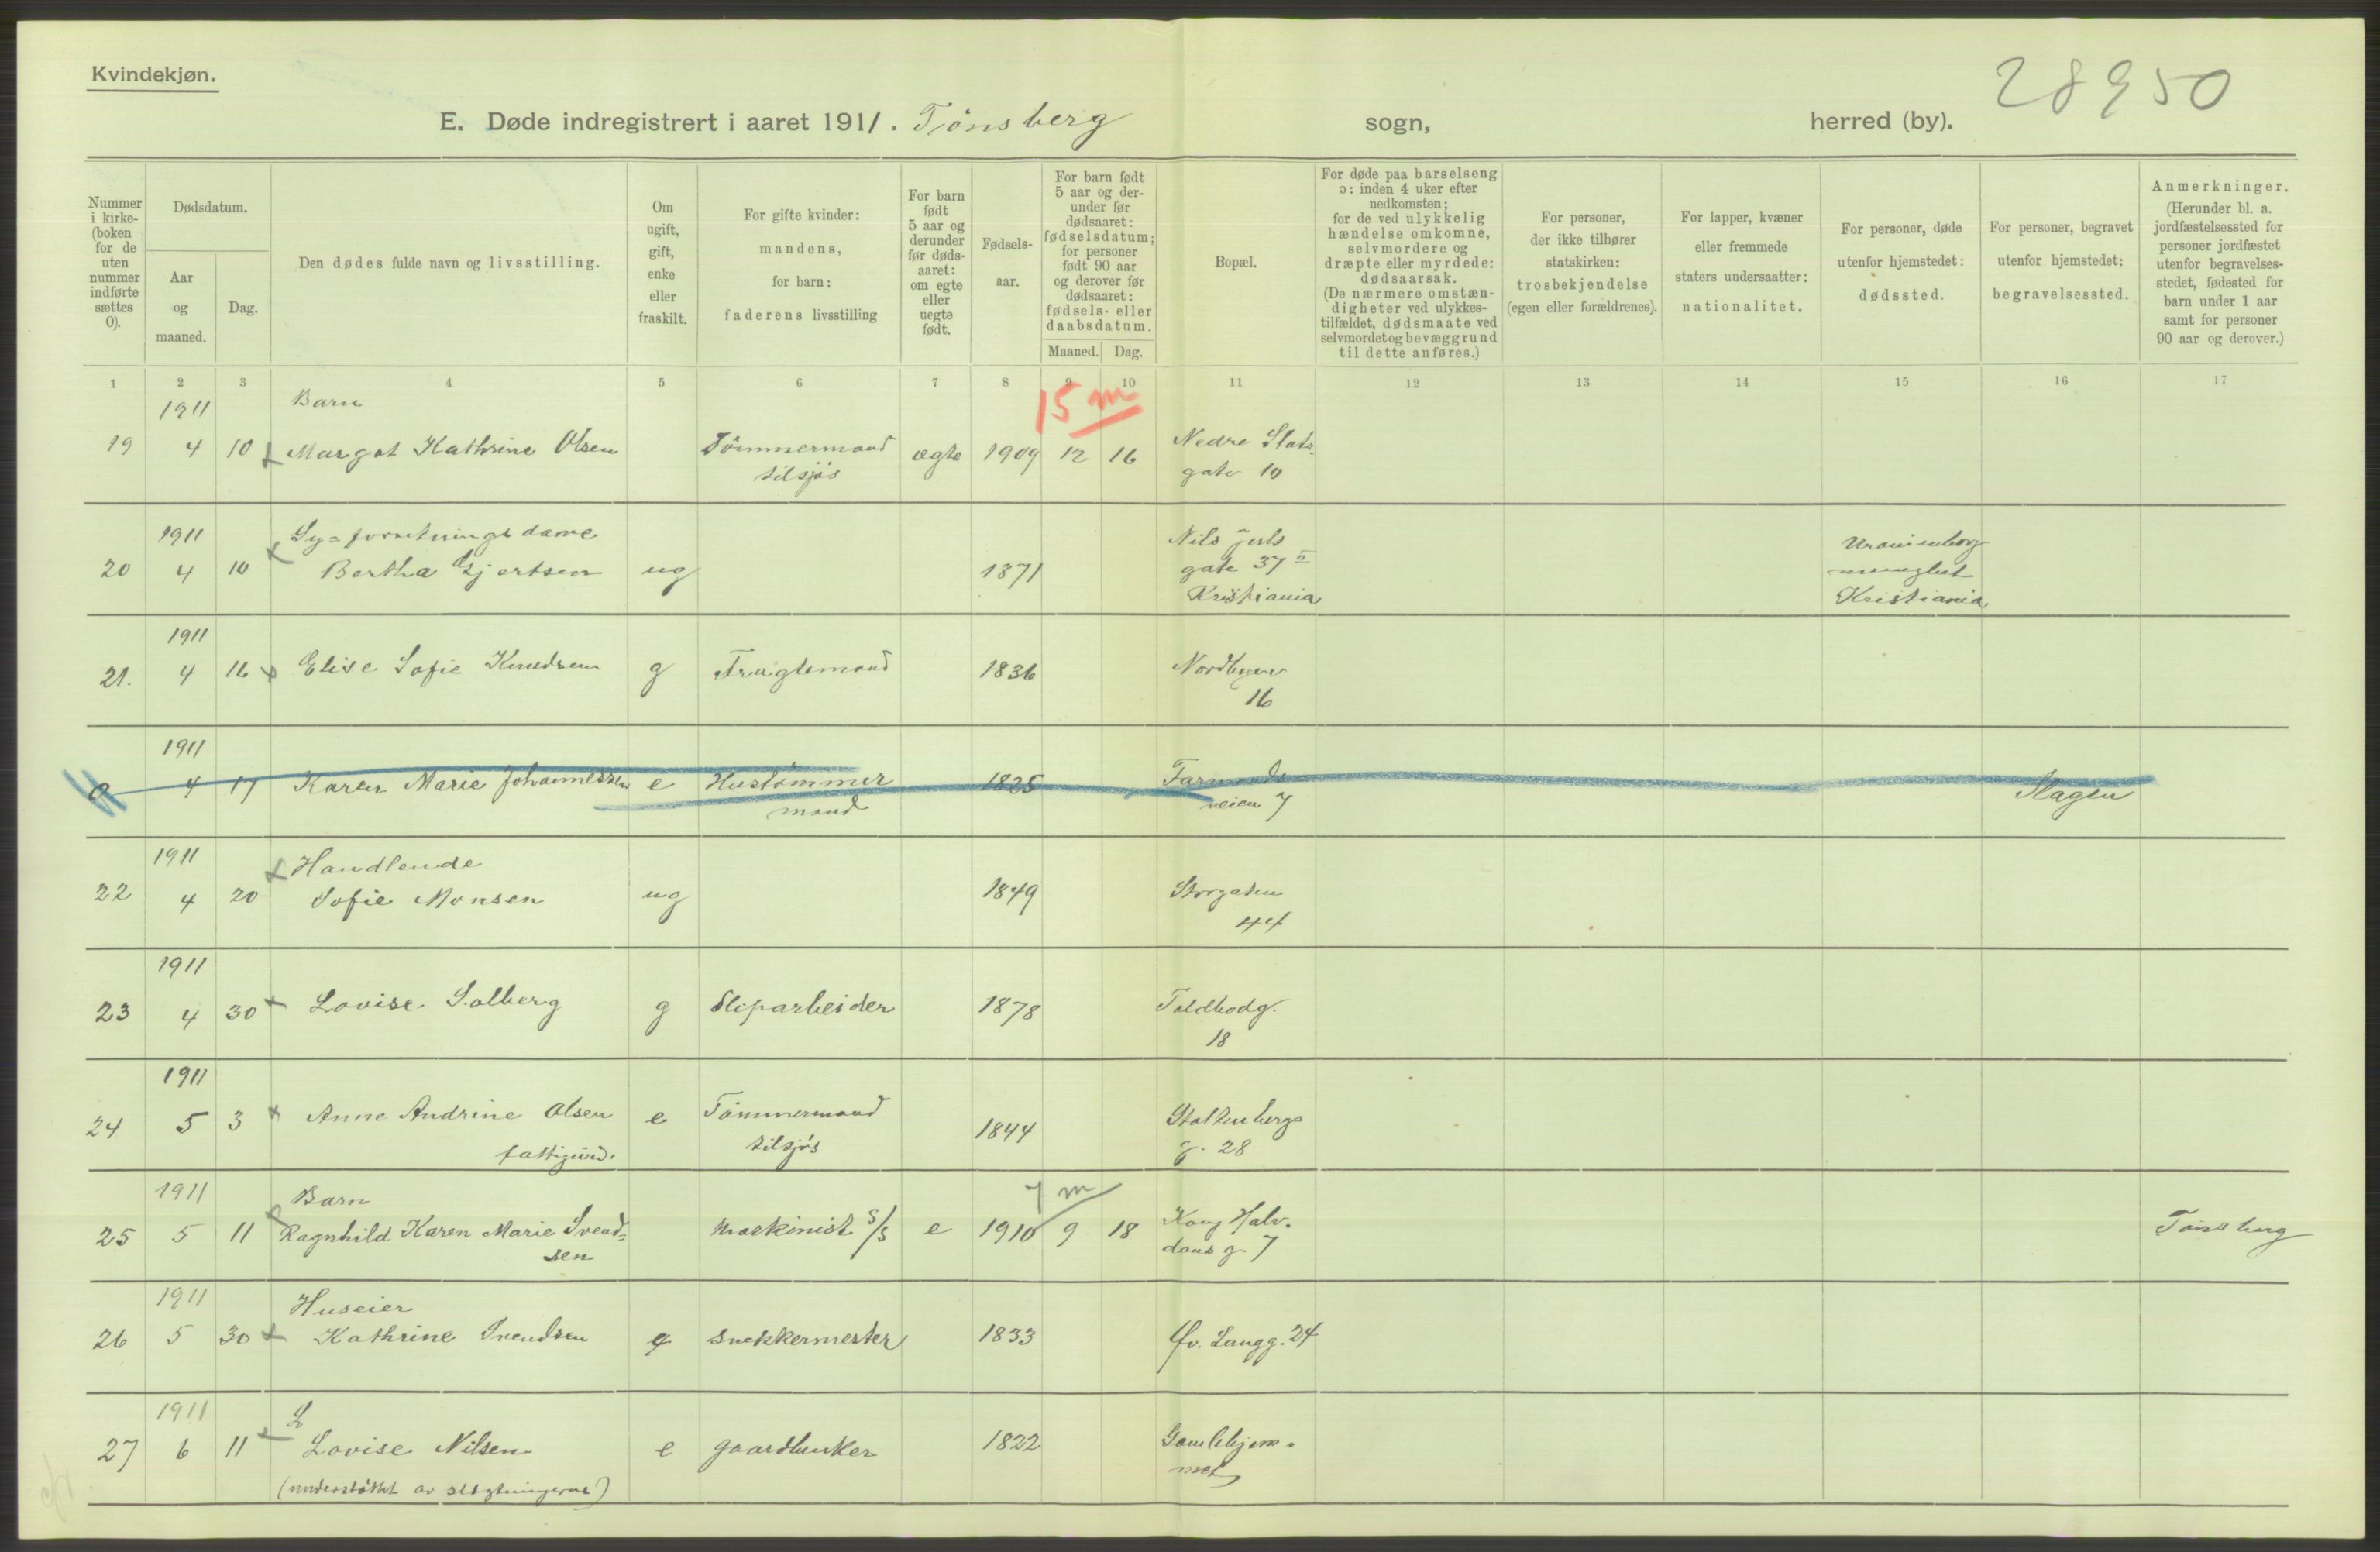 Kvindekjøn.
28950
E. Døde indregistrert i aaret 1911. Tønsberg sogn, herred (by).
Nummer i kirke- (boken for de uten nummer indførte sættes 0).
Dødsdatum.
Aar og maaned.
Dag.
Den dødes fulde navn og livsstilling.
Om ugift, gift, enke eller fraskilt.
For gifte kvinder: mandens, for barn: faderens livsstilling
For barn født 5 aar og derunder før døds- aaret: om egte eller uegte født.
Fødsels- aar.
For barn født 5 aar og der- under før dødsaaret: fødselsdatum; for personer født 90 aar og derover før dødsaaret: fødsels- eller daabsdatum.
Maaned. Dag.
Bopæl.
For døde paa barselseng ɔ: inden 4 uker efter nedkomsten; for de ved ulykkelig hændelse omkomne, selvmordere og dræpte eller myrdede: dødsaarsak. (De nærmere omstæn- digheter ved ulykkes- tilfældet, dødsmaate ved selvmordet og bevæggrund til dette anføres.)
For personer, der ikke tilhører statskirken: trosbekjendelse (egen eller forældrenes).
For lapper, kvæner eller fremmede staters undersaatter: nationalitet.
For personer, døde utenfor hjemstedet: dødssted.
For personer, begravet utenfor hjemstedet: begravelsessted.
Anmerkninger. (Herunder bl. a. jordfæstelsessted for personer jordfæstet utenfor begravelses- stedet, fødested for barn under 1 aar samt for personer 90 aar og derover.)
1 2 3 4 5 6 7 8 9 10 11 12 13 14 15 16 17
1911 Barn 15 m
19 4 10 Margot Kathrine Olsen Tømmermand ægte 1909 12 16 Nedre Slots-
tilsjøs gate 10
1911 Sy=forretningsdame Nils Juels
20 4 10 Bertha Gjertsen ug 1871 gate 37 II Uranienborg
Kristiania menighet
Kristiania
1911
21. 4 16 Elise Sofie Knudsen g Fragtemand 1836 Nordbyen
16
1911
0 4 17 Karen Marie Johannessen e Hustømmer 1825 Farmands Slagen
mand veien 7
1911 Handlende
22 4 20 Sofie Monsen ug 1849 Storgaten
44
1911
23 4 30 Lovise Solberg g Sliparbeider 1878 Toldbodg.
18
1911
24 5 3 Anne Andrine Olsen e Tømmermand 1844 Stoltenbergs
fattigund. tilsjøs g. 28
1911 Barn 7 m
25 5 11 Ragnhild Karen Marie Svend= Maskinist S/S e 1910 9 18 Kong Halv- Tønsberg
sen dans g. 7
1911 Huseier
26 5 30 Kathrine Svendsen g Snekkermester 1833 Øv. Langg. 24
1911 L
27 6 11 Lovise Nilsen e gaardbruker 1822 Gamlehjem-
(understøttet av slegtningerne) met